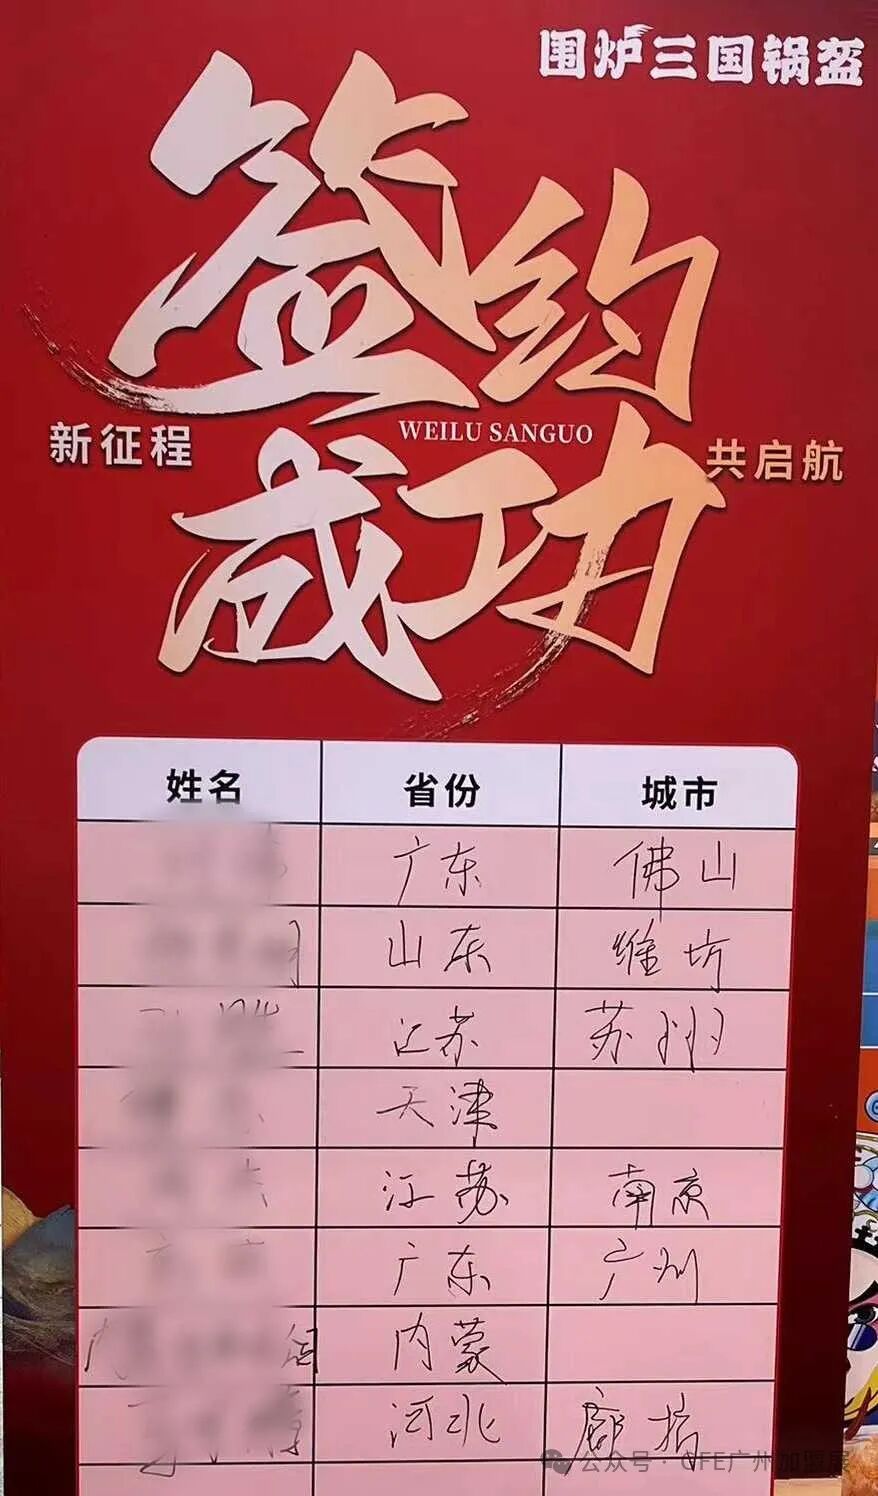 围炉三国锅盔
签约
新征程 WEILU SANGUO 共启航
成功
姓名 省份 城市
广东 佛山
山东 潍坊
江苏 苏州
天津
江苏 南京
广东 广州
内蒙
河北 廊坊
公众号·CFE广州加盟展